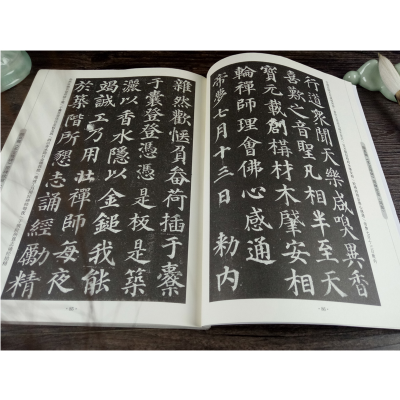 雜然歡愜負畚荷插于橐
于囊登登憑憑是板是築
灑以香水隱以金鎚我能
竭誠工乃用壯禪師每夜
於築階所懇志誦經勵精
行道衆聞天樂咸嗅異香
喜歎之音聖凡相半至天
寶元載創構材木肇安相
輪禪師理會佛心感通
帝夢七月十三日勅內